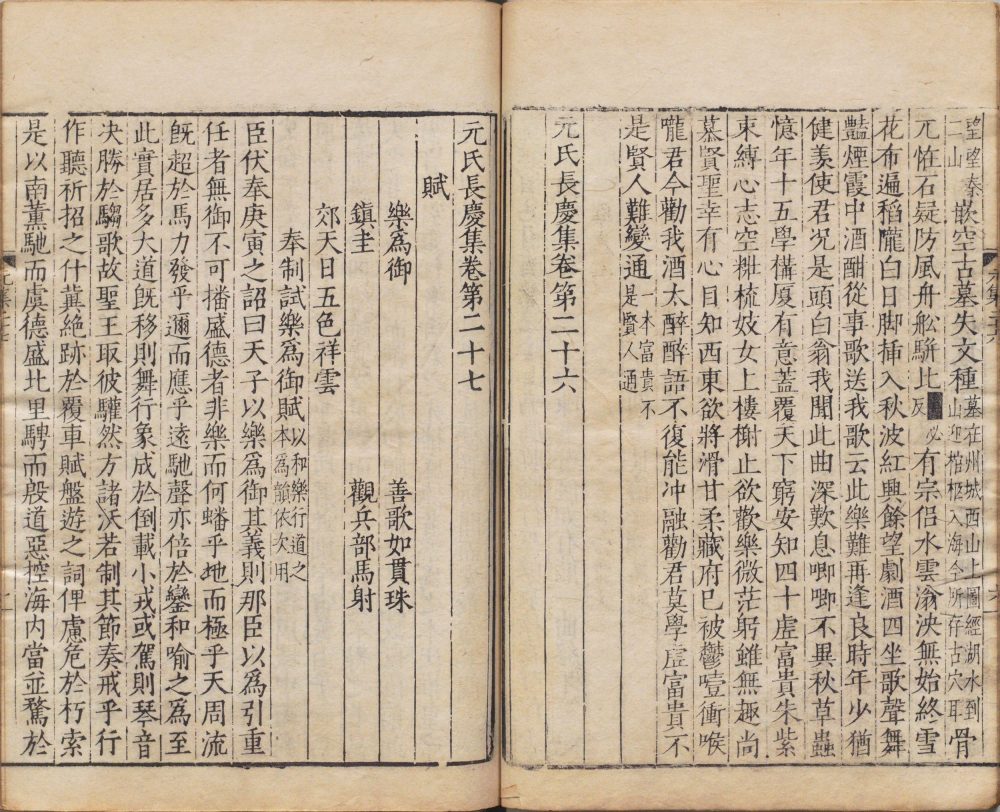 望望秦二山嵌空古墓失文種墓在州城西山上圖經湖水到山迎棺柩入海今所存古穴耳骨
元恠石疑防風舟舩駢比必反有宗侶水雲滃泱無始終雪
花布遍稻隴白日脚揷入秋波紅興餘望劇酒四坐歌聲舞
豔煙霞中酒酣從事歌送我歌云此樂難再逢良時年少猶
健羨使君况是頭白翁我聞此曲深歎息唧唧不異秋草蟲
憶年十五學構厦有意蓋覆天下窮安知四十虛富貴朱紫
束縛心志空糚梳妓女上樓榭止欲歡樂微茫躬雖無趣尚
慕賢聖幸有心目知西東欲將滑甘柔藏府已被鬱噎衝喉
嚨君今勸我酒太醉醉語不復能冲融勸君莫學虛富貴不
是賢人難變通一本富貴不是賢人通
元氏長慶集卷第二十六
元氏長慶集卷第二十七
賦
樂為御 善歌如貫珠
鎮圭 觀兵部馬射
郊天日五色祥雲
奉制試樂為御賦以和樂行道之本為韻依次用
臣伏奉庚寅之詔曰天子以樂為御其義則那臣以為引重
任者無御不可播盛德者非樂而何蟠乎地而極乎天周流
旣超於馬力發乎邇而應乎遠馳聲亦倍於鑾和喻之為至
此實居多大道旣移則舞行象成於倒載小戎或駕則琴音
决勝於騶歌故聖王取彼驩然方諸沃若制其節奏戒乎行
作聽祈招之什冀絶跡於覆車賦盤遊之詞俾慮危於朽索
是以南薫馳而虞德盛北里騁而殷道惡控海内當並騖於